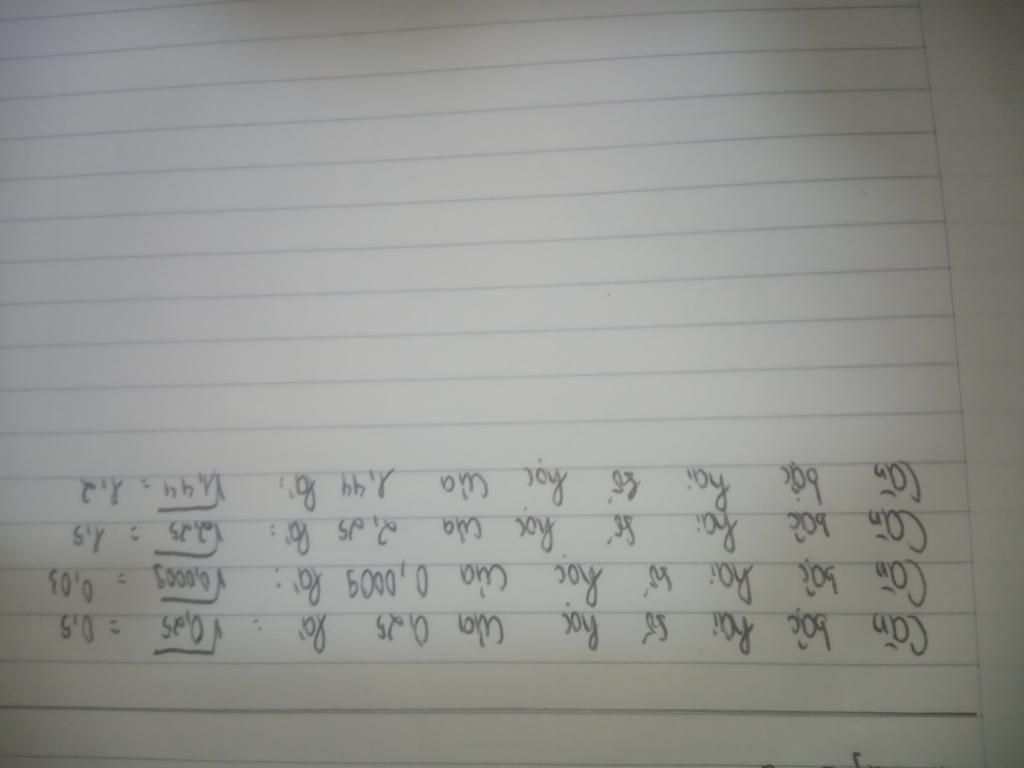 Căn bậc hai số học của 0,25 là : √0,25 = 0,5
Căn bậc hai số học của 0,0009 là : √0,0009 = 0,03
Căn bậc hai số học của 2,25 là : √2,25 = 1,5
Căn bậc hai số học của 1,44 là : √1,44 = 1,2